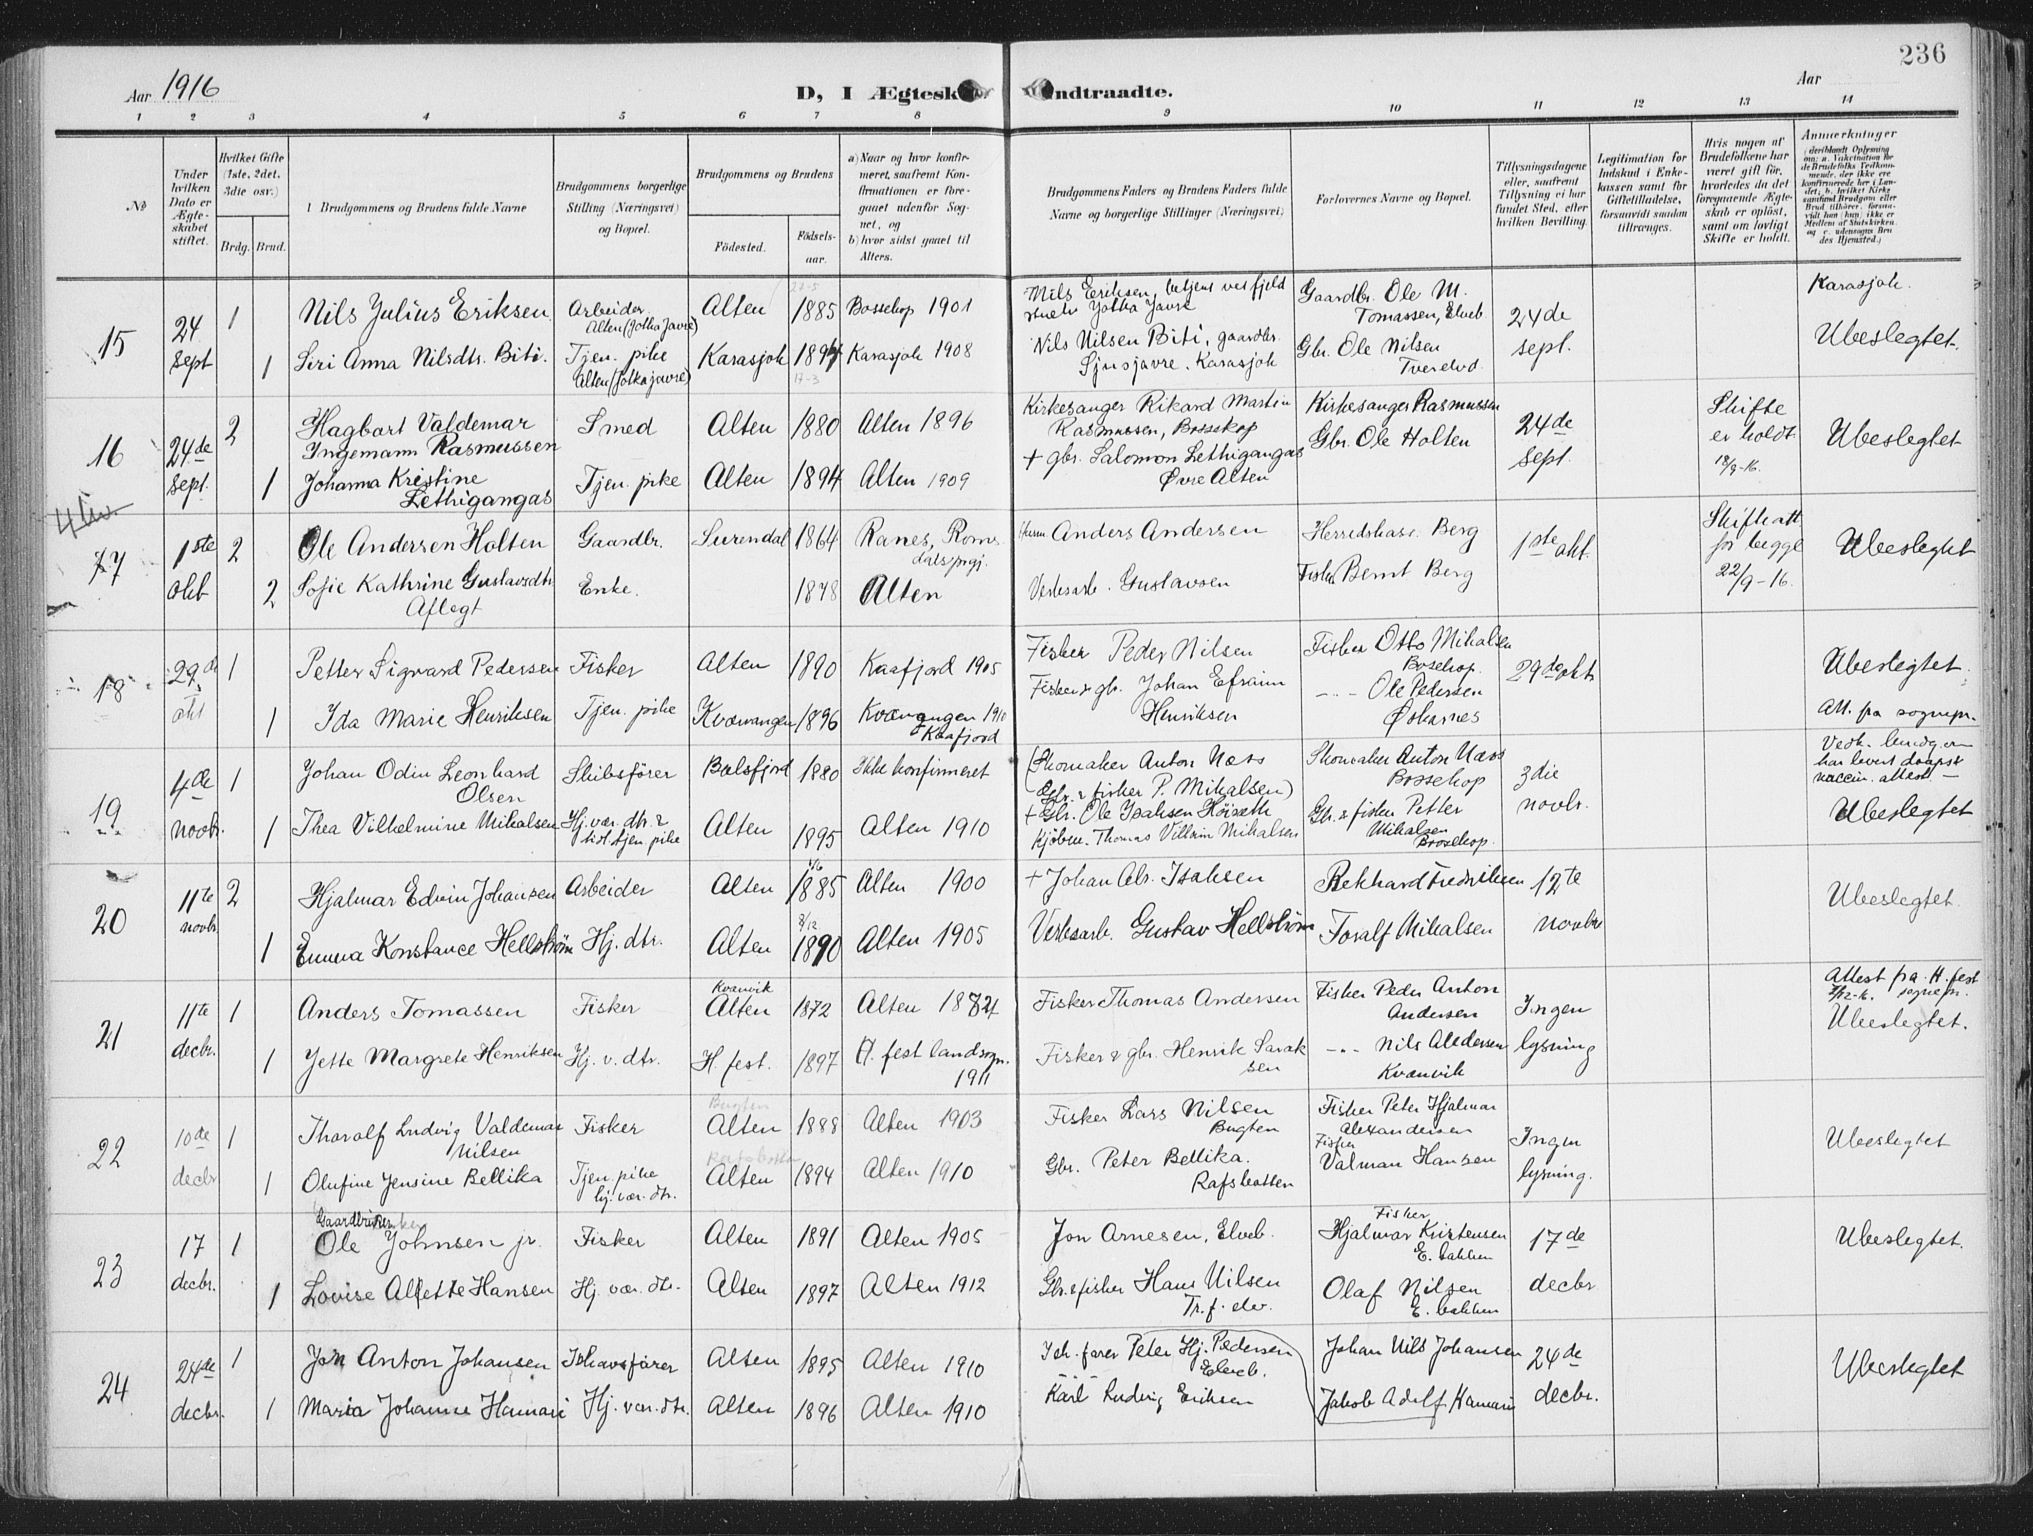 236
Aar 1916
D, I Ægtesk
ndtraadte.
Aar
1 2 3 4 5 6 7 8 9 10 11 12 13 14
№
Under hvilken Dato er Ægteskabet stiftet.
Hvilket Gifte (1ste, 2det, 3die osv.)
Brdg. Brud.
Brudgommens og Brudens fulde Navne
Brudgommens borgerlige Stilling (Næringsvei) og Bopæl.
Brudgommens og Brudens
Fødested.
Fødselsaar.
a) Naar og hvor konfirmeret, saafremt Konfirmationen er foregaaet udenfor Sognet, og
b) hvor sidst gaaet til Alters.
Brudgommens Faders og Brudens Faders fulde Navne og borgerlige Stillinger (Næringsvei)
Forlovernes Navne og Bopæl.
Tillysningsdagene eller, saafremt Tillysning ei har fundet Sted, efter hvilken Bevilling.
Legitimation for Indskud i Enkekassen samt for Giftetilladelse, forsaavidt saadan tiltrænges.
Hvis nogen af Brudefolkene har været gift før, hvorledes da det foregaaende Ægteskab er opløst, samt om lovligt Skifte er holdt.
Anmærkninger
15
24 sept
1
Nils Julius Eriksen
Arbeider Alten (Jotka Javre)
Alten
1885
Bossekop 1901
Nils Eriksen, betjent ved fjeldstuen Jotka Javre
Gaardbr. Ole M. Tomassen, Elveb.
24de sept.
Karasjok.
Ubeslegtet.
1
Siri Anna Nilsdtr. Biti.
Tjen. pike Alten (Jotkajavre)
Karasjok
1894
17-3
Karasjok 1908
Nils Nilsen Biti, gaardbr. Sjusjavre. Karasjok
Gbr. Ole Nilsen Tverelvd.
16
24de sept.
2
Hagbart Valdemar Ingemann Rasmussen
Smed
Alten
1880
Alten 1896
Kirkesanger Rikard Martin Rasmussen, Bossekop
Kirkesanger Rasmussen
24de sept.
Skifte er holdt 18/9-16.
Ubeslegtet
1
Johanna Kristine Lethigangas
Tjen. pike
Alten
1894
Alten 1909
+ gbr. Salomon Lethigangas Øvre Alten
Gbr. Ole Holten
17
1ste okt
2
Ole Andersen Holten
Gaardbr.
Surendal
1864
Ranes, Romsdals prgj.
Anders Andersen
Herredskass. Berg
1ste okt.
Skifteatt. for begge 22/9-16.
Ubeslegtet
2
Sofie Kathrine Gustavsdtr. Aflegt
Enke.
1848
Alten
Verksarb. Gustavsen
Fisker Bernt Berg
18
29de okt
1
Petter Sigvard Pedersen
Fisker
Alten
1890
Kaafjord 1905
Fisker Peder Nilsen
Fisker Otto Mikalsen Bosekop.
29de okt.
Ubeslegtet.
1
Ida Marie Henriksen
Tjen. pike
Kvænangen
1896
Kvænangen 1910 Kaafjord
Fisker & gbr. Johan Efraim Henriksen
-"- Ole Pedersen Øskarnes
Att. fra sognepr.
19
4de novbr.
1
Johan Odin Leonhard Olsen
Skibsfører
Balsfjord
1880
Ikke konfirmeret
(Skomaker Anton Næss
Skomaker Anton Næss Bossekop
3die novbr.
Vedk. brudgom har levert daaps & vaccin. attest —
Ubeslegtet
1
Thea Vilhelmine Mikalsen
Hj. vær. dtr. & tidl. tjen. pike
Alten
1895
Alten 1910
Gbr. & fisker P. Mikalsen)
+ Gbr. Ole Isaksen Høiseth
Kjøbm. Thomas Villum Mikalsen
Gbr. & fisker Petter Mikalsen Bossekop.
20
11te novbr.
2
Hjalmar Edvin Johansen
Arbeider
Alten
1885
Alten 1900
+ Johan Alr. Isaksen
Rekhard Fredriksen
12te novbr
Ubeslegtet.
1
Emma Konstance Hellstrøm
Hj. dtr.
Alten
8/12
1890
Alten 1905
Verksarb. Gustav Hellstrøm
Toralf Mikalsen
21
11te decbr.
1
Anders Tomassen
Fisker
Kvænvik
Alten
1872
Alten
Fisker Thomas Andersen
Fisker Peder Anton Andersen
Ingen lysning
Attest fra H.fest sognepr.
Ubeslegtet.
1
Jette Margrete Henriksen
Hj. v. dtr.
H. fest.
1897
H. fest landsogn. 1911
Fisker & gbr. Henrik Isaksen
-"- Nils Andersen Kvænvik
22
10de decbr
1
Tharalf Ludvig Valdemar Nilsen
Fisker
Bugten
Alten
1888
Alten 1903
Fisker Lars Nilsen Bugten
Fisker Peter Hjalmar Alexandersen
Ingen lysning.
Ubeslegtet
1
Olufine Jensine Bellika
Tjen. pike hj. vær. dtr.
Rafsbotten
Alten
1894
Alten 1910
Gbr. Peter Bellika. Rafsbotten
Fisker Valman Hansen
23
17 decbr.
1
Gaardbruker
Ole Johnsen jr.
Fisker
Alten
1891
Alten 1905
Jon Arnesen, Elveb.
Fisker Hjalmar Kristensen E. bakken
17de decbr
Ubeslegtet.
1
Lovise Alfette Hansen
Hj. vær. dtr.
Alten
1897
Alten 1912
Gbr. & fisker Hans Nilsen Tr. f. elv.
Olaf Nilsen E. bakken
24
24de decbr.
1
Jon Anton Johansen
Ishavsfører
Alten
1895
Alten 1910
Ish. fører Peter Hj. Pedersen Elveb.
Johan Nils Johansen
24de decbr.
Ubeslegtet
1
Maria Johanne Hamari
Hj. vær. dtr.
Alten
1896
Alten 1910
Karl Ludvig Eriksen
Jakob Adolf Hamari